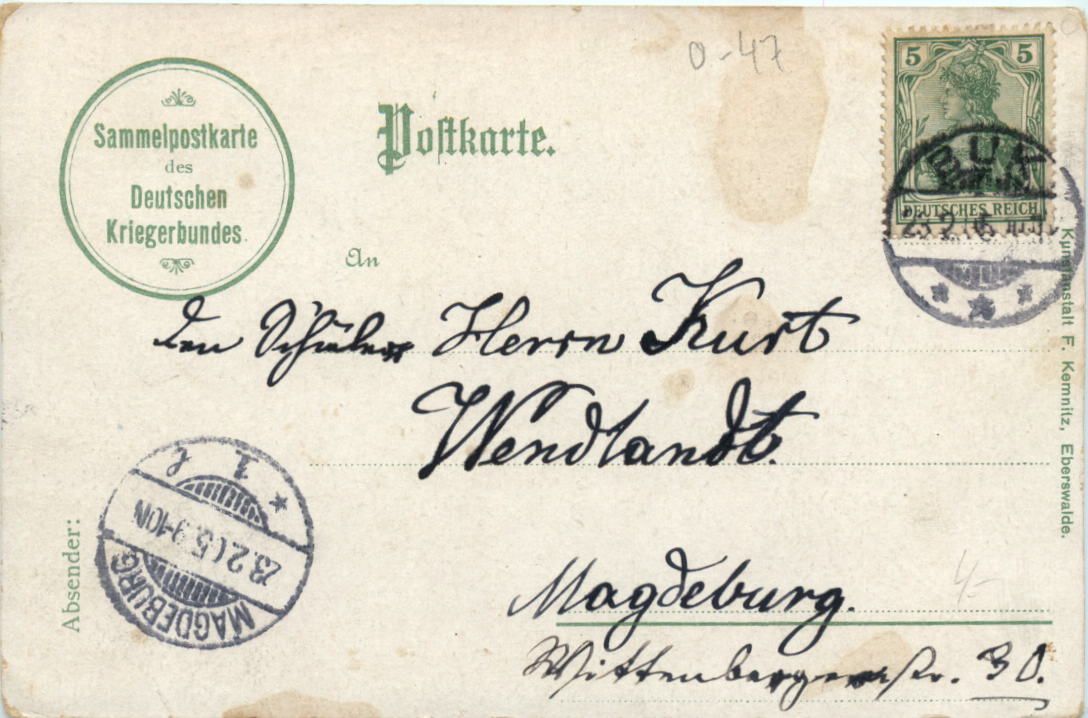 0-47
Sammelpostkarte
des
Deutschen
Kriegerbundes
Postkarte.
5 5
DEUTSCHES REICH
BUK
23.2
An
den Schüler Herrn Kurt
Wendlandt.
Magdeburg.
Wittenbergerstr. 30.
4,-
Absender:
MAGDEBURG
23.2.05. 9-10N
* 1 l
Kunstanstalt F. Kemnitz, Eberswalde.